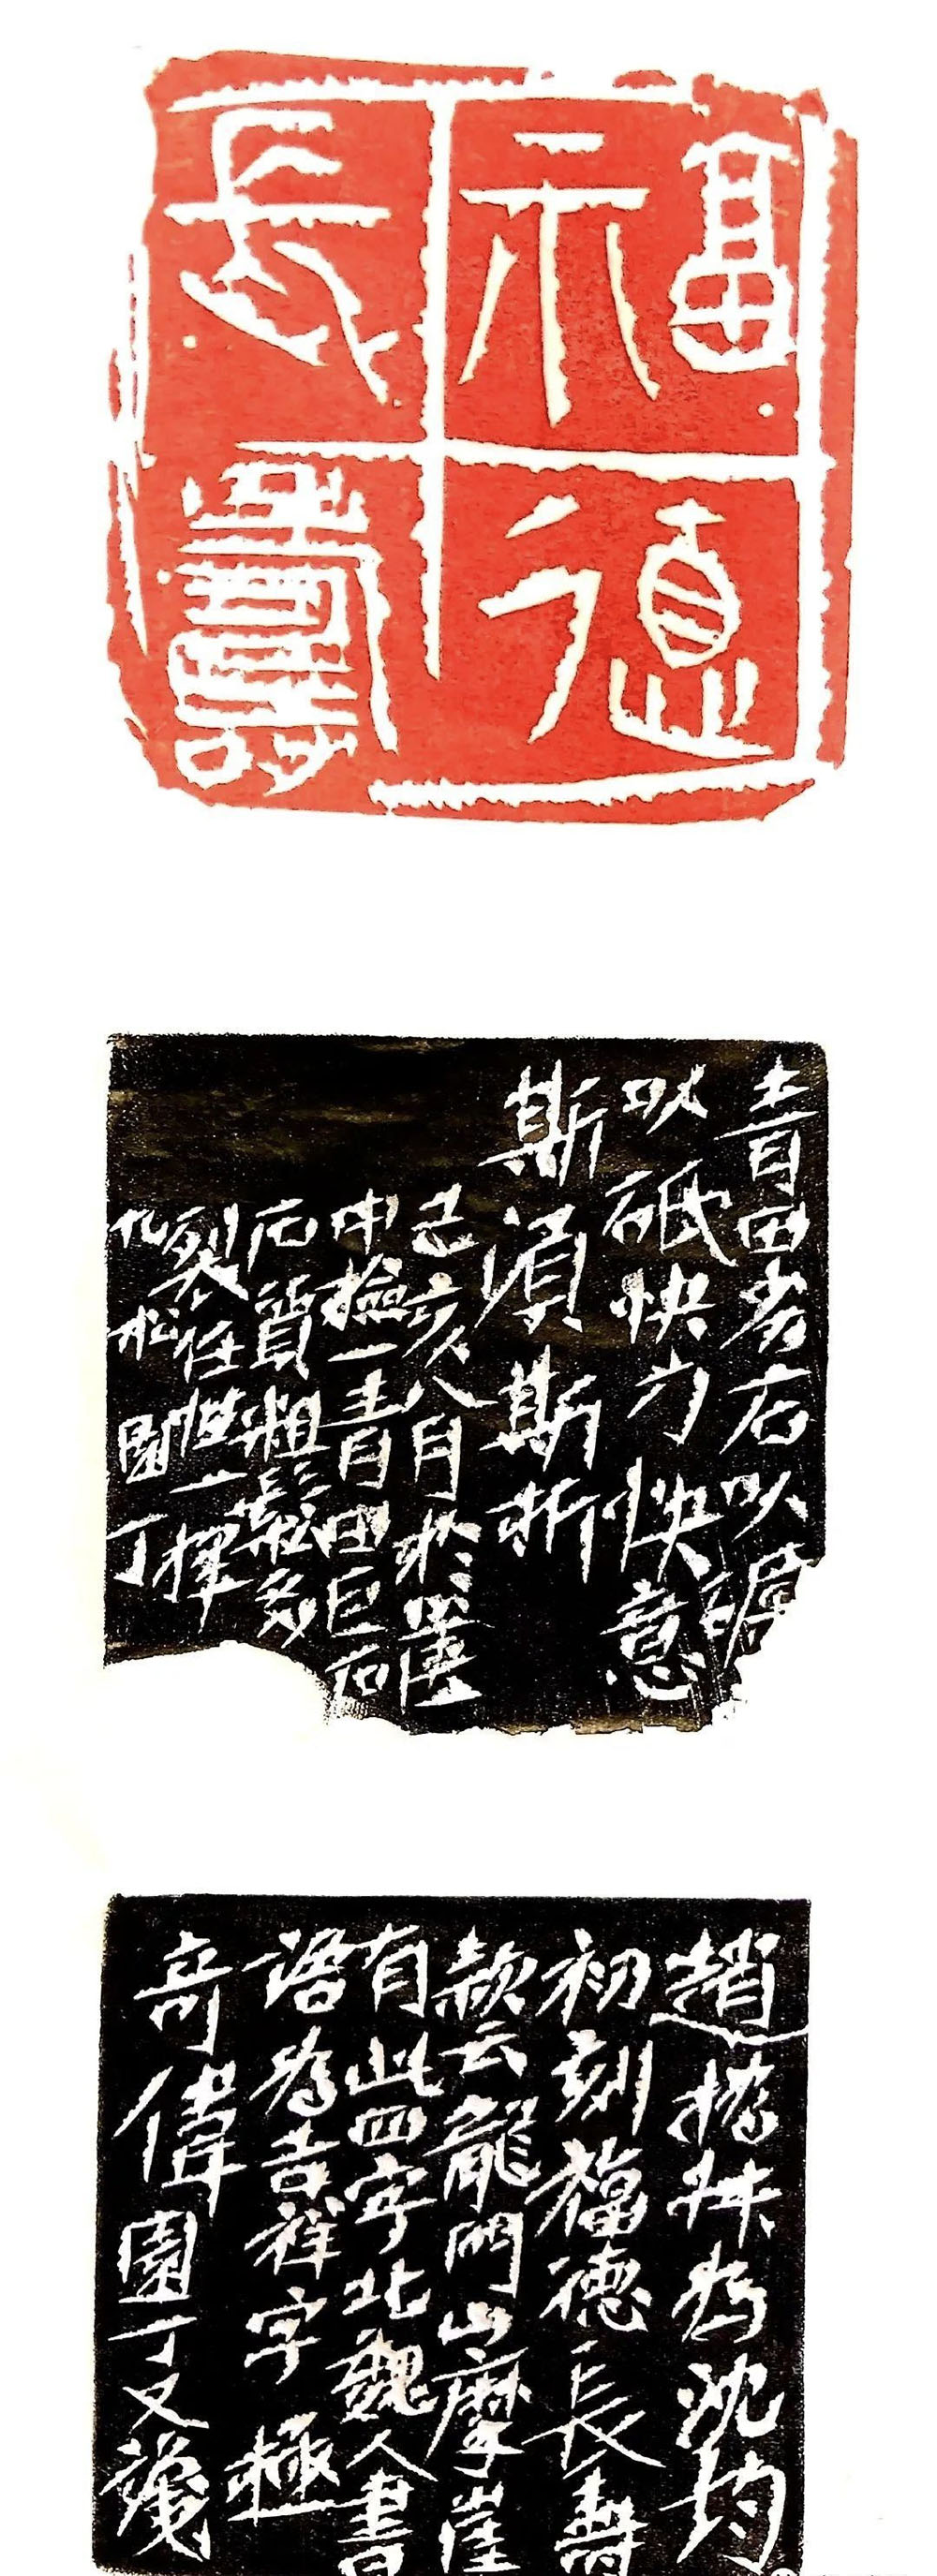 福德
長壽
青田劣石以
以砥快刀快意
斯須斯折
己亥八月於
中檢一青田巨石
石質粗鬆多
裂任性一揮
九松園丁
趙撝叔為沈均
初刻福德長壽
款云龍門山摩崖
有此四字北魏人書
語為吉祥字極
奇偉園丁又識